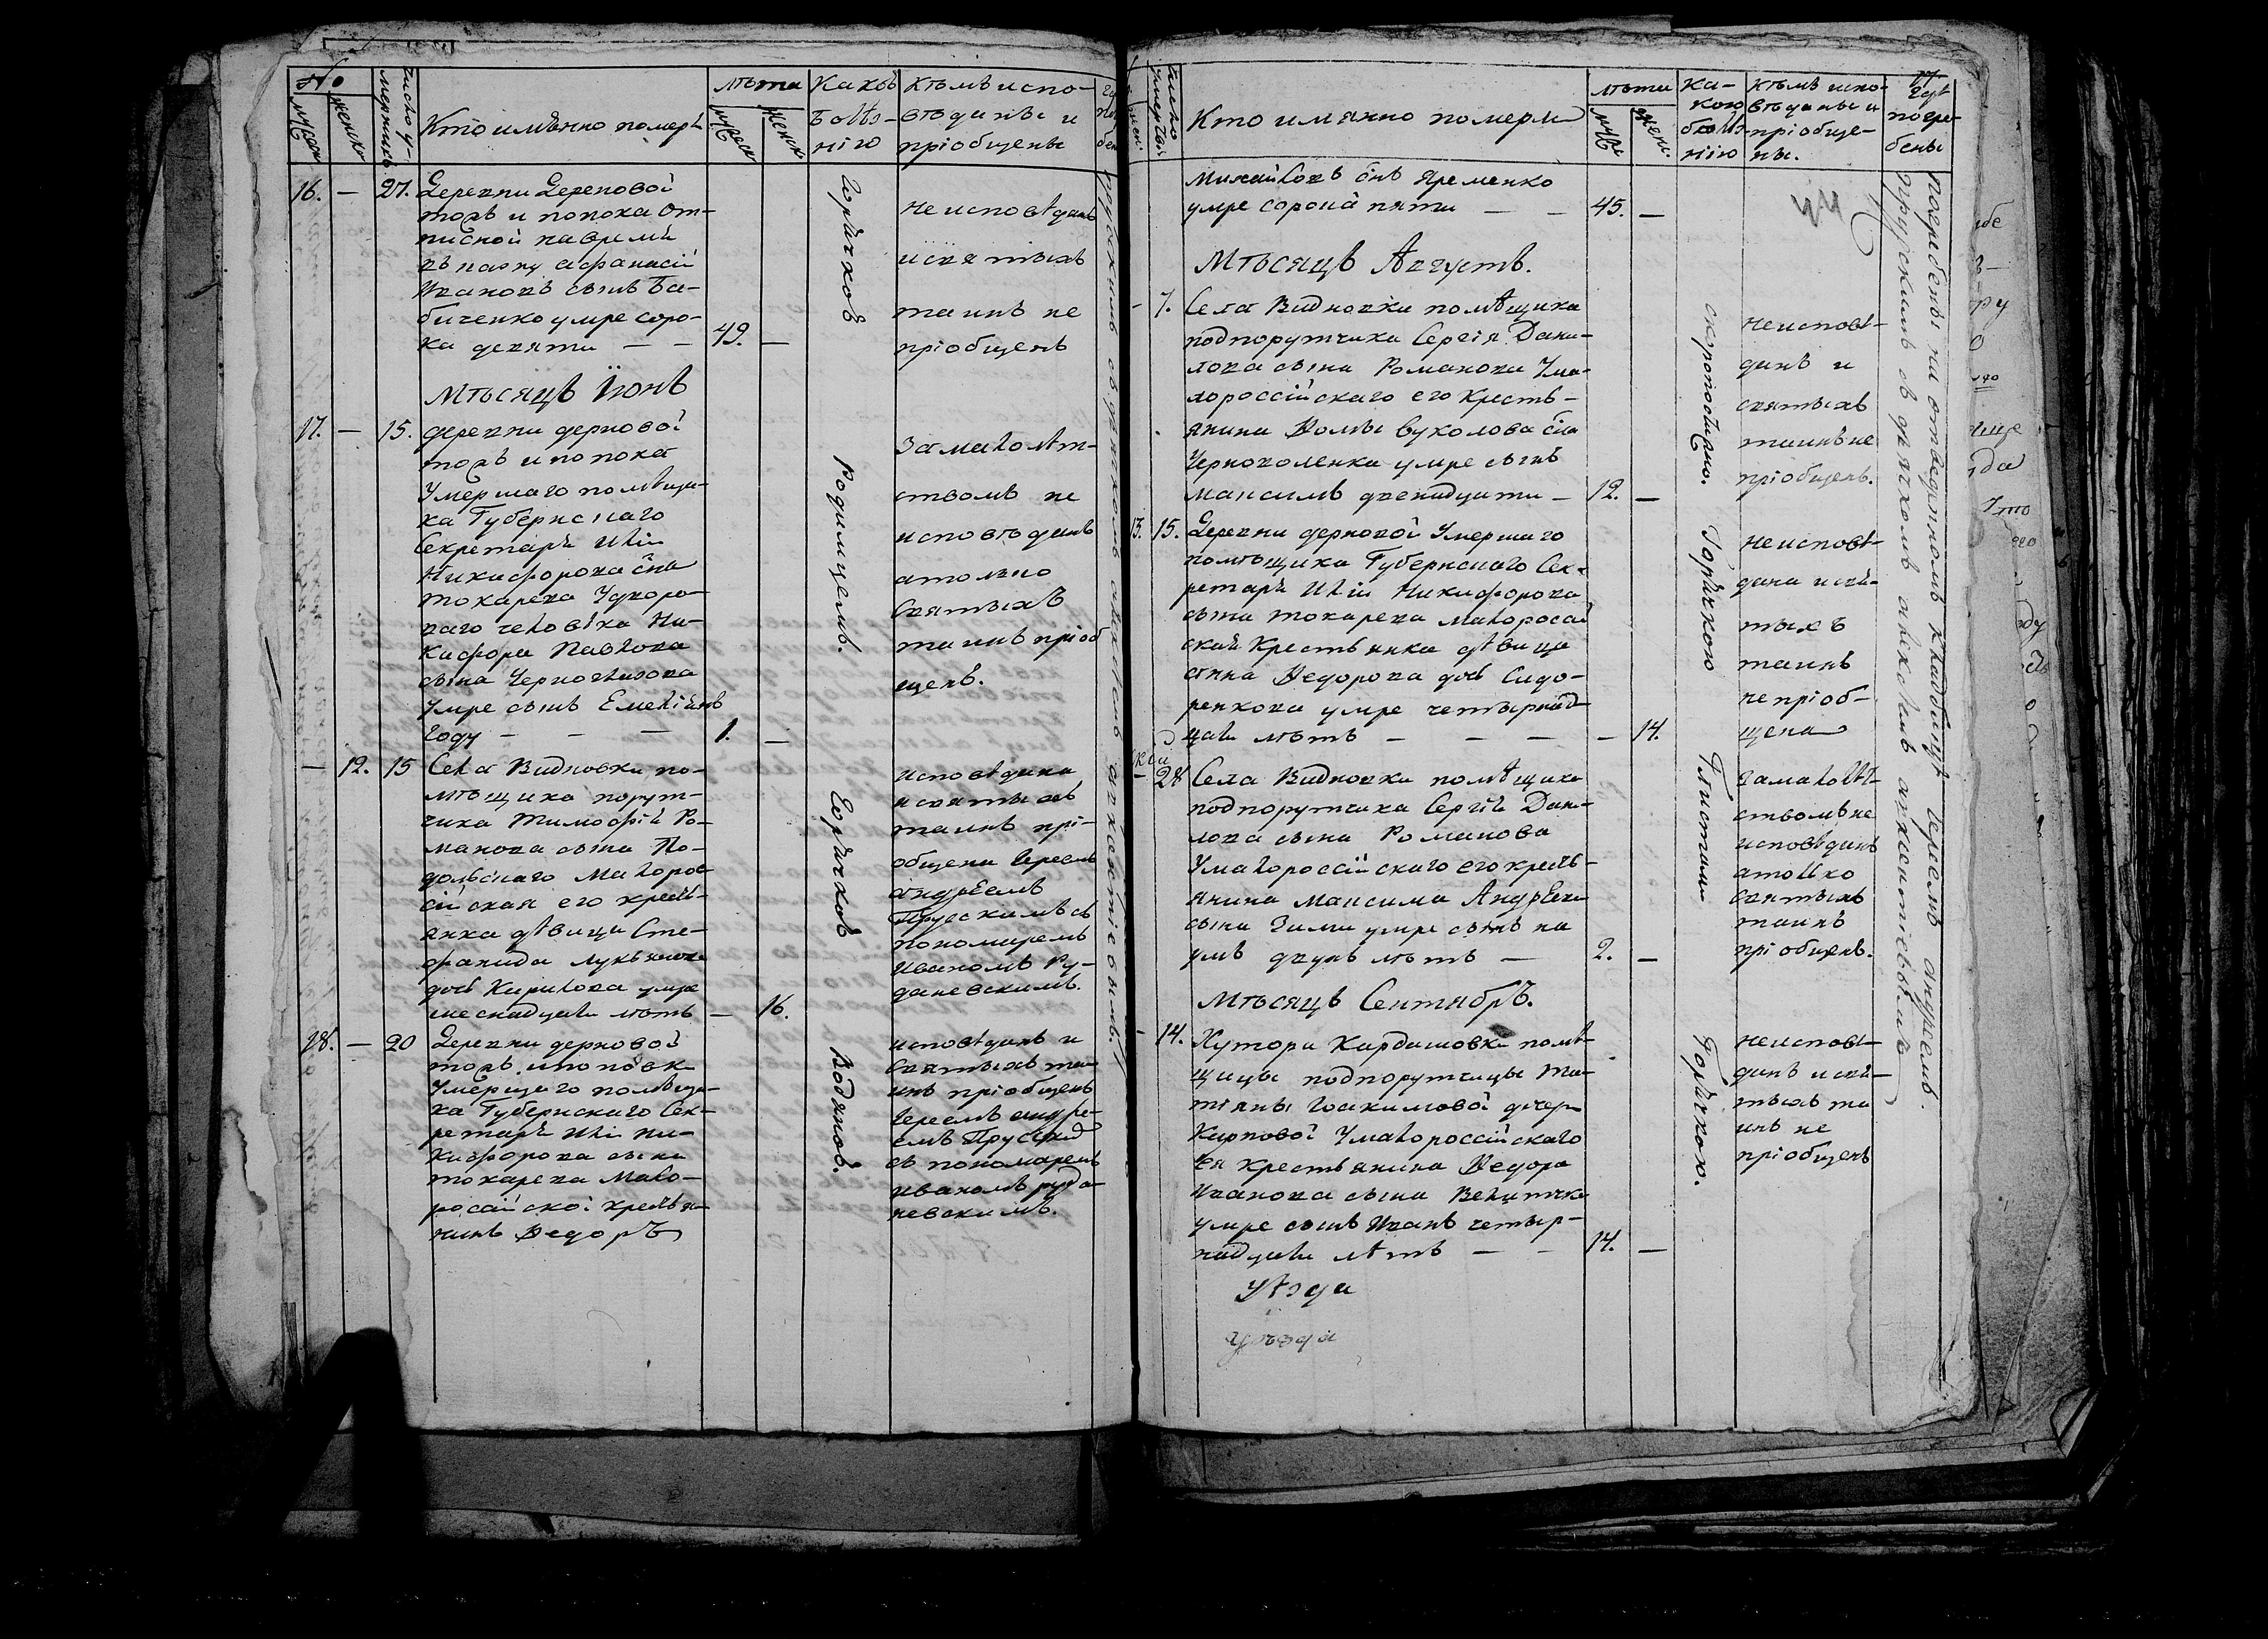 No
мужеск
женско
число у-
мершихъ
Кто имѣнно померъ
лѣта
мужеск
женск
Какой
болѣ-
нію
кѣмъ испо-
вѣданы и
пріобщены
16. — 27. Деревни Дерновой
тожъ и попока От-
писной
Афанасій
Ивановъ сынъ Ба-
биченко умре соро-
ка девяти — — 49. —
горячкой
неисповѣданъ
и святыхъ
таинъ не
пріобщенъ
Мѣсяцъ Їюнь
17. — 15. деревни дерновой
тожъ и попока
Умершаго помѣщи-
ка Губернскаго
Секретаря Иліи
Никифорова сна
токарева Удворо-
ваго человѣка Ни-
кифора Павлова
сына
Умре сынъ Емеліянъ
году — — — 1. —
родимцемъ.
За малолѣт-
ствомъ не
исповѣданъ
атолко
святыхъ
таинъ пріоб
щенъ.
— 12. 15 Села Видновки по-
мѣщика порут-
чика Тимофѣя Ро-
манова сына По-
дольскаго Малорос
сійская его крестъ-
янка дѣвица Сте-
фанида
дочь Кирилова умре
шеснадцати лѣтъ — 16.
горячкой
исповѣдана
и святыхъ
таинъ прі-
общена Іереемъ
андрѣемъ
Прускимъ съ
пономаремъ
Иваномъ Ру-
даневскимъ.
18. — 20 Деревни дерновой
тожъ ипоповк
Умершаго помѣщи-
ка Губернскаго Сек-
ретаря Иліи Ни-
кифорова сына
токарева Мало-
російской крестья-
нинъ Ѳедоръ
водяной.
исповѣданъ и
святыхъ та-
инъ пріобщенъ
Іереемъ андре-
емъ Прускимъ
съ пономаремъ
иваномъ руда-
невскимъ.
число
умершихъ
Кто имянно померли
лѣта
муж
женс.
Ка-
кою
болѣз-
нію
кѣмъ испо-
вѣданы и
пріобще-
ны.
77
Гдѣ
погре-
бены
Михайловъ снъ Яременко
умре сорока пяти — — 45. —
44
Мѣсяцъ Августъ.
— 7. Села Видновки помѣщика
подпорутчика Сергія Дани-
лова сына Романова Ума-
лороссійскаго его крестъ-
янина Ѳомы Вуколова сна
Черноголенка умре сынъ
Максимъ двенадцати — 12. —
скоропостижно.
неисповѣ-
данъ и
святыхъ
таинъ не
пріобщенъ.
13. 15. Деревни дерновой Умершаго
помѣщика Губернскаго Сек-
ретаря Иліи Никифорова
сына токарева малоросій
ская Крестьянка дѣвица
анна Ѳедорова дочь Сидо-
ренкова умре четырнад-
цати лѣтъ — — — — 14.
Горячкою
неисповѣ-
дана и свя-
тыхъ
таинъ
непріоб-
щена
— 28 Села Видновки помѣщика
подпорутчика Сергія Дани-
лова сына Романова
Умалороссійскаго его крестъ-
янина Максима Андрѣева
сына Зими умре сынъ на
умъ двухъ лѣтъ — 2. —
Глистами
Замалолѣт-
ствомъ не
исповѣданъ
атолко
святыхъ
таинъ
пріобщенъ.
Мѣсяцъ Сентябрь.
— 14. Хутора Кардашовки помѣ-
щицы подпорутчицы Та-
тіяны Іоакимовой дочери
Карповой Умалороссійскаго
ея крестьянина Ѳедора
Иванова сына Величка
умре сынъ Иванъ четыр-
надцати лѣтъ — — 14. —
Горячкою.
неисповѣ-
данъ и свя-
тыхъ та
инъ не
пріобщенъ
Погребены на отведенномъ кладбищѣ Іереемъ андреемъ.
Прускимъ съ дячкомъ
Уѣзда
уѣзда